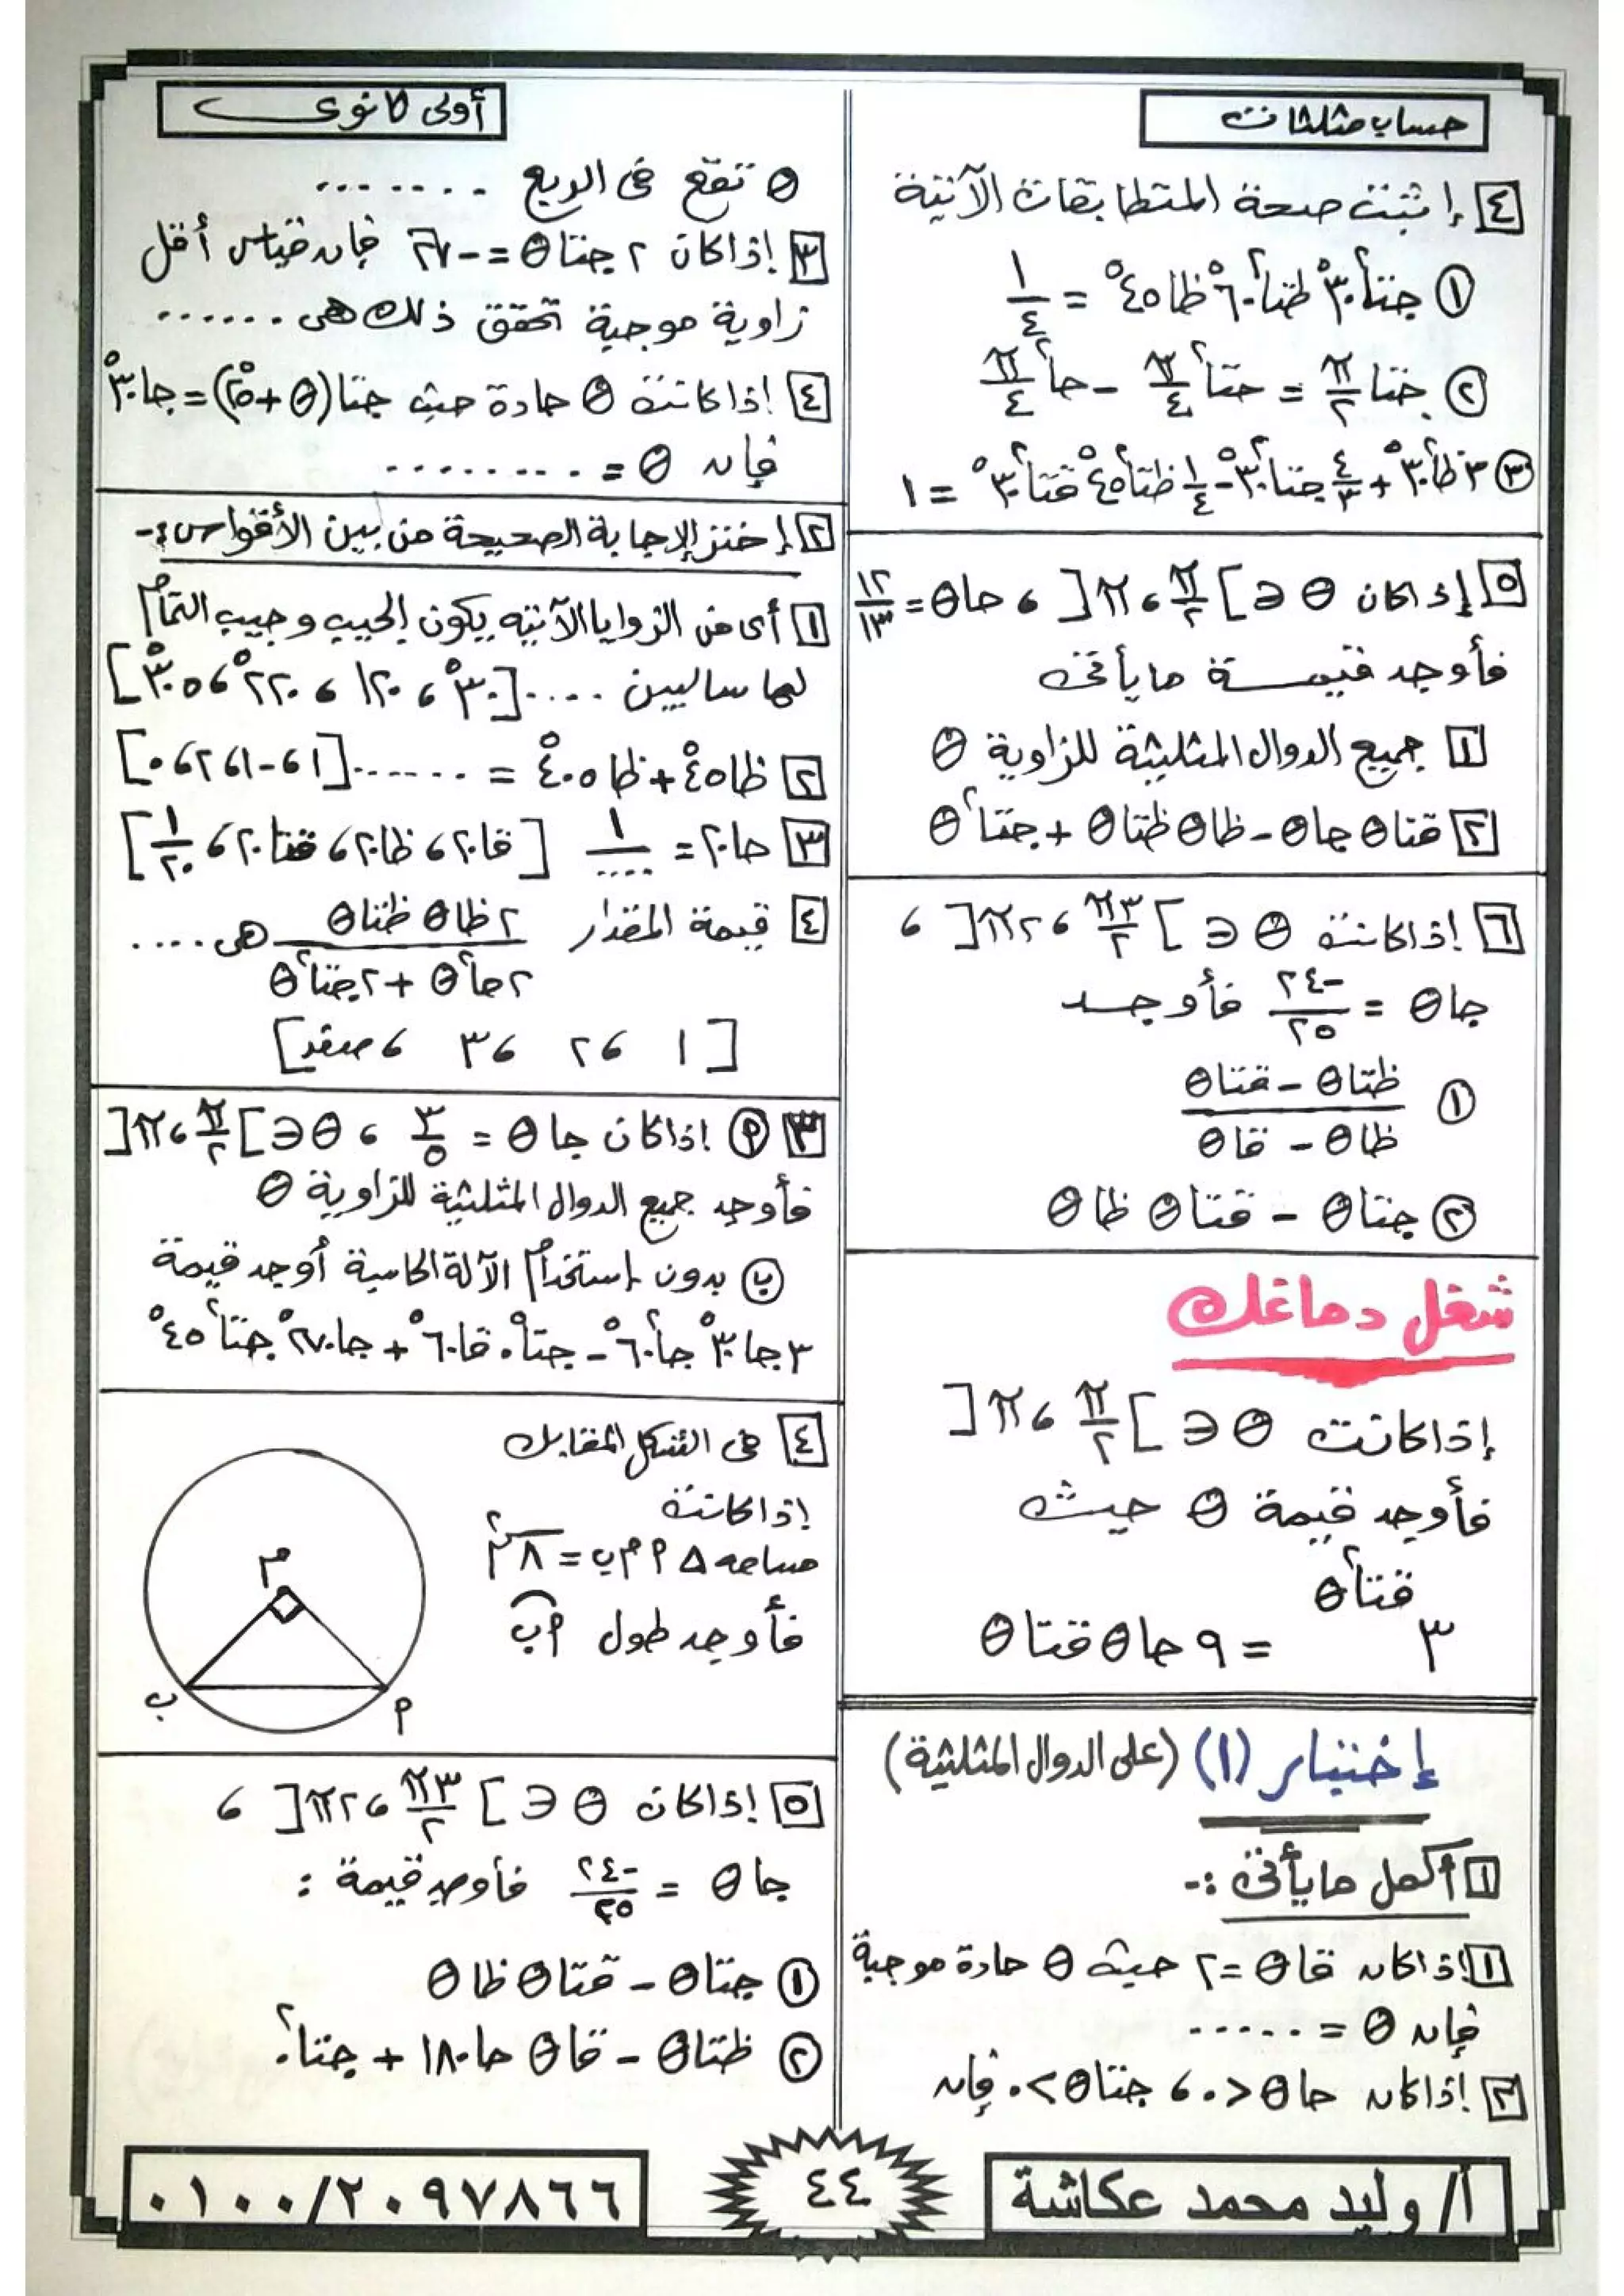 حساب مثلثات
٤ إثبت صحة المتطابقات الآتية
① جتا²٣٠° ظتا²٦٠° ظا٤٥° = ١/٤
② جتا π/٢ = جتا² π/٤ - جا² π/٤
③ ٣ظا²٣٠° + ٤/٣ جتا²٣٠° - ١/٤ ظتا²٤٥° قتا²٣٠° = ١
٥ إذا كان θ ∈ ]π/٢ ، π[ ، حاθ = ١٢/١٣
فأوجد قيمة ما يأتى
١ جميع الدوال المثلثية للزاوية θ
٢ قتاθ جاθ - ظاθ ظتاθ + جتا²θ
٦ إذا كانت θ ∈ ]٣π/٢ ، ٢π[ ،
جاθ = -٢٤/٢٥ فأوجد
① (ظتاθ - قتاθ)/(ظاθ - قاθ)
② جتاθ - قتاθ ظاθ
شغل دماغك
إذا كانت θ ∈ ]π/٢ ، π[
فأوجد قيمة θ حيث
٣^(قتا²θ) = ٩ حاθ قتاθ
إختبار (١) (على الدوال المثلثية)
١ أكمل ما يأتى :-
١ إذا كان قاθ = ٢ حيث θ حادة موجبة
فإن θ = .....
٢ إذا كان حاθ > ٠ ، جتاθ < ٠ فإن
أولى ثانوى
θ تقع فى الربع .......
٣ إذا كان ٢ جتاθ = -√٢ فإن قياس أقل
زاوية موجبة تحقق ذلك هى ......
٤ إذا كانت θ حادة حيث جتا(θ + ٢٥°) = جا٣٠°
فإن θ = ........
٢ إختر الإجابة الصحيحة من بين الأقواس :-
١ أى من الزوايا الآتية يكون الجيب وجيب التمام
لها سالبين .... [٣٠° ، ١٢٠ ، ٢٢٠° ، ٣٠٥°]
٢ ظا٤٥° + ظا٤٠٥° = ...... [١ ، -١ ، ٢ ، ٠]
٣ حا٢٠ = ١/.... [قا٢٠ ، ظا٢٠ ، قتا٢٠ ، ١/٢٠]
٤ قيمة المقدار (٢ظاθ ظتاθ)/(٢حا²θ + ٢جتا²θ) هى ....
[١ ، ٢ ، ٣ ، صفر]
٣ أ إذا كان جاθ = ٣/٥ ، θ ∈ ]π/٢ ، π[
فأوجد جميع الدوال المثلثية للزاوية θ
ب بدون إستخدام الآلة الحاسبة أوجد قيمة
٣جا٣٠° جا²٦٠° - جتا٠° قا٦٠° + جا٢٧٠° جتا²٤٥°
٤ فى الشكل المقابل
إذا كانت
مساحه △ أ م ب = ٨ سم²
فأوجد طول أب
م
ب
أ
٥ إذا كان θ ∈ ]٣π/٢ ، ٢π[ ،
جاθ = -٢٤/٢٥ فأوجد قيمة :
① جتاθ - قتاθ ظاθ
② ظتاθ - قاθ حا١٨٠ + جتا²٠
أ/ وليد محمد عكاشة
٤٤
٠١٠٠/٢٠٩٧٨٦٦